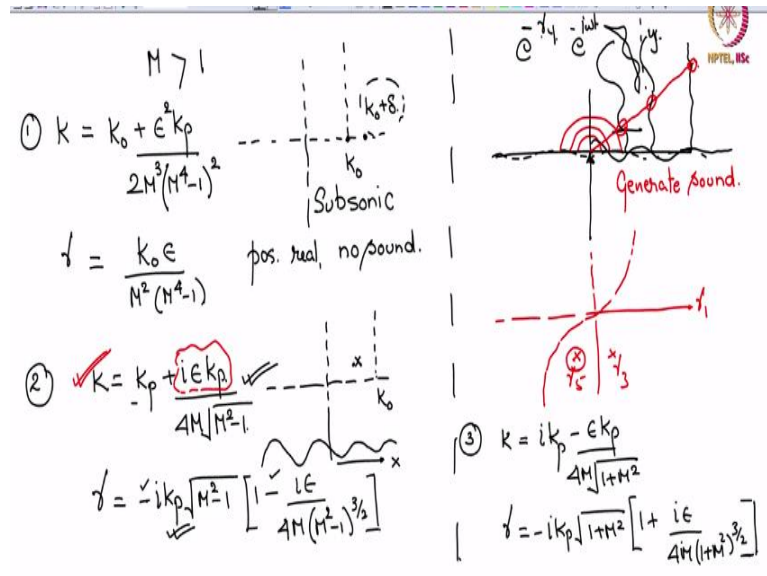 M > 1
① k = k₀ + ε²kₚ / 2M³(M⁴-1)²
|k₀+δ|
k₀
Subsonic
γ = k₀ε / M²(M⁴-1)
pos. real, no sound.
② k = kₚ + iεkₚ / 4M√M²-1
x
k₀
x
γ = -ikₚ√M²-1 [1 - iε / 4M(M²-1)^3/2]
e^-γy e^-iωt
iy
NPTEL, IISc
Generate sound.
γ₁
x γ₅
x γ₃
③ k = ikₚ - εkₚ / 4M√1+M²
γ = -ikₚ√1+M² [1 + iε / 4iM(1+M²)^3/2]